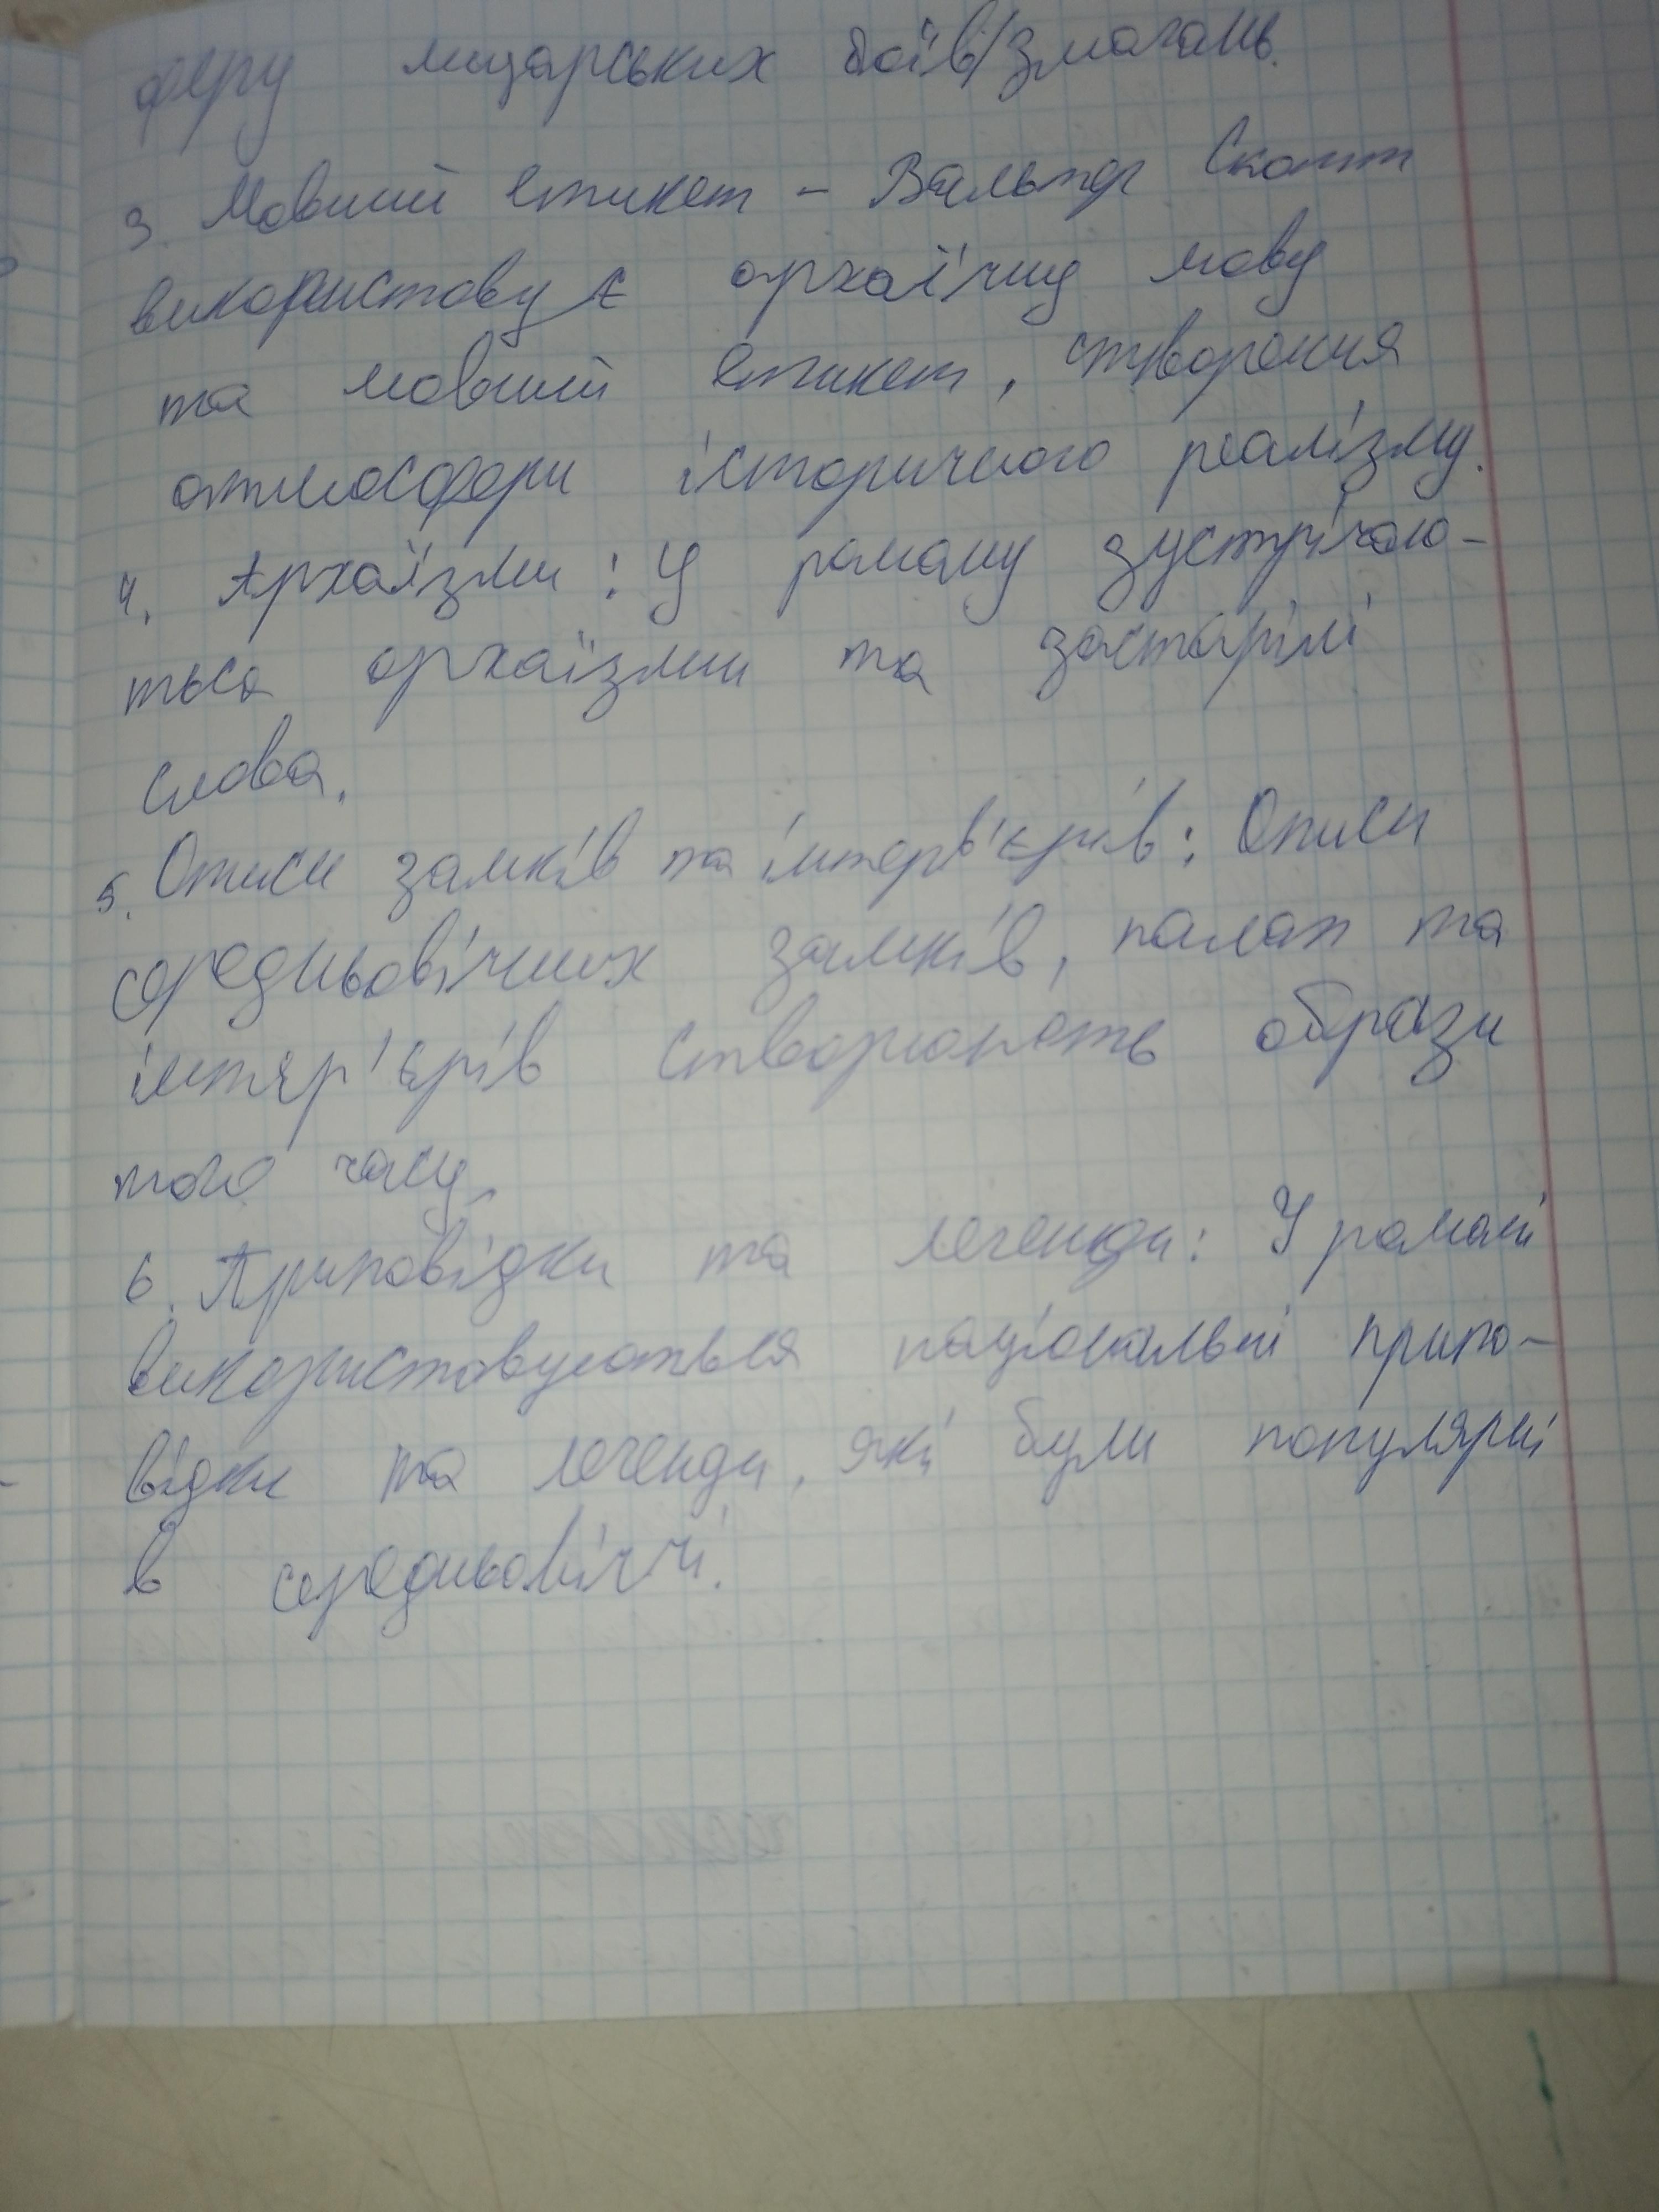 феру лицарських боїв/змагань.
3. Мовний етикет – Вальтер Скотт
використовує архаїчну мову
та мовний етикет, створення
атмосфери історичного реалізму.
4. Архаїзми: У роману зустрічаю-
ться архаїзми та застарілі
слова.
5. Описи замків та інтерв'єрів: Описи
середньовічних замків, палат та
інтер'єрів створюють образи
того часу.
6. Приповідки та легенди: У романі
використовуються національні припо-
відки та легенди, які були популярні
в середньовіччі.